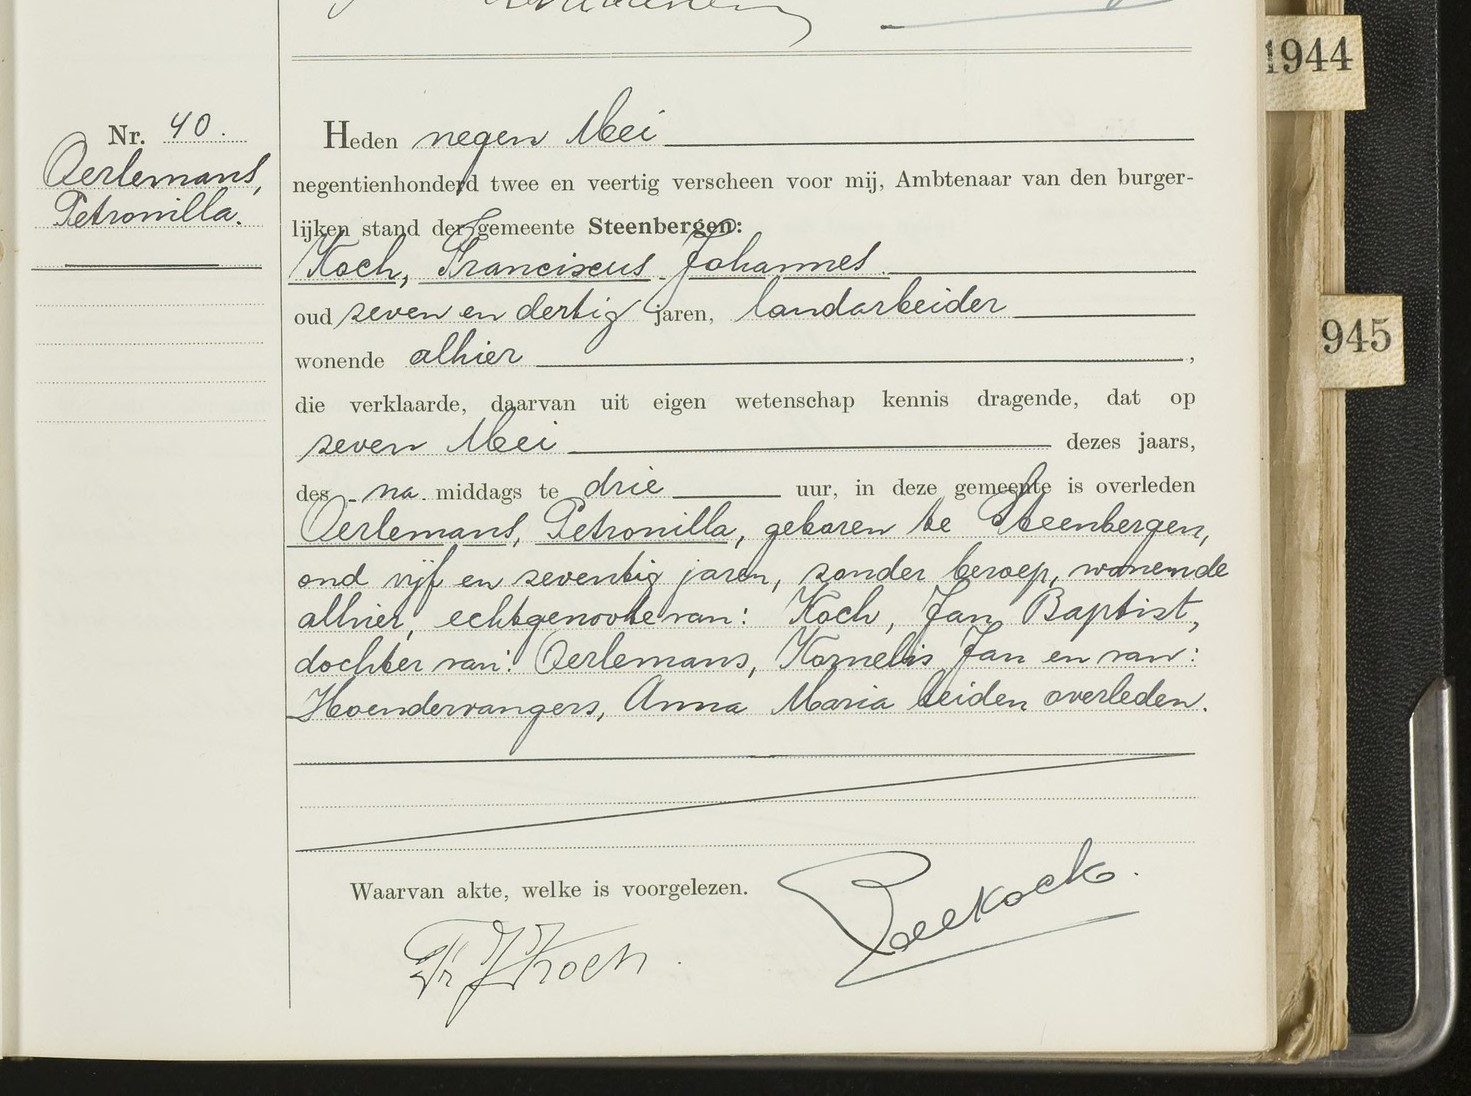 1944
945
Nr. 40.
Oerlemans,
Petronilla.
Heden negen Mei
negentienhonderd twee en veertig verscheen voor mij, Ambtenaar van den burger-
lijken stand der gemeente Steenbergen:
Koch, Franciscus Johannes.
oud zeven en dertig jaren, landarbeider
wonende alhier ,
die verklaarde, daarvan uit eigen wetenschap kennis dragende, dat op
zeven Mei dezes jaars,
des na middags te drie uur, in deze gemeente is overleden
Oerlemans, Petronilla, geboren te Steenbergen,
oud vijf en zeventig jaren, zonder beroep, wonende
alhier, echtgenoote van: Koch, Jan Baptist,
dochter van: Oerlemans, Kornelis Jan en van:
Hoendervangers, Anna Maria beiden overleden.
Waarvan akte, welke is voorgelezen.
Fr J Koch.